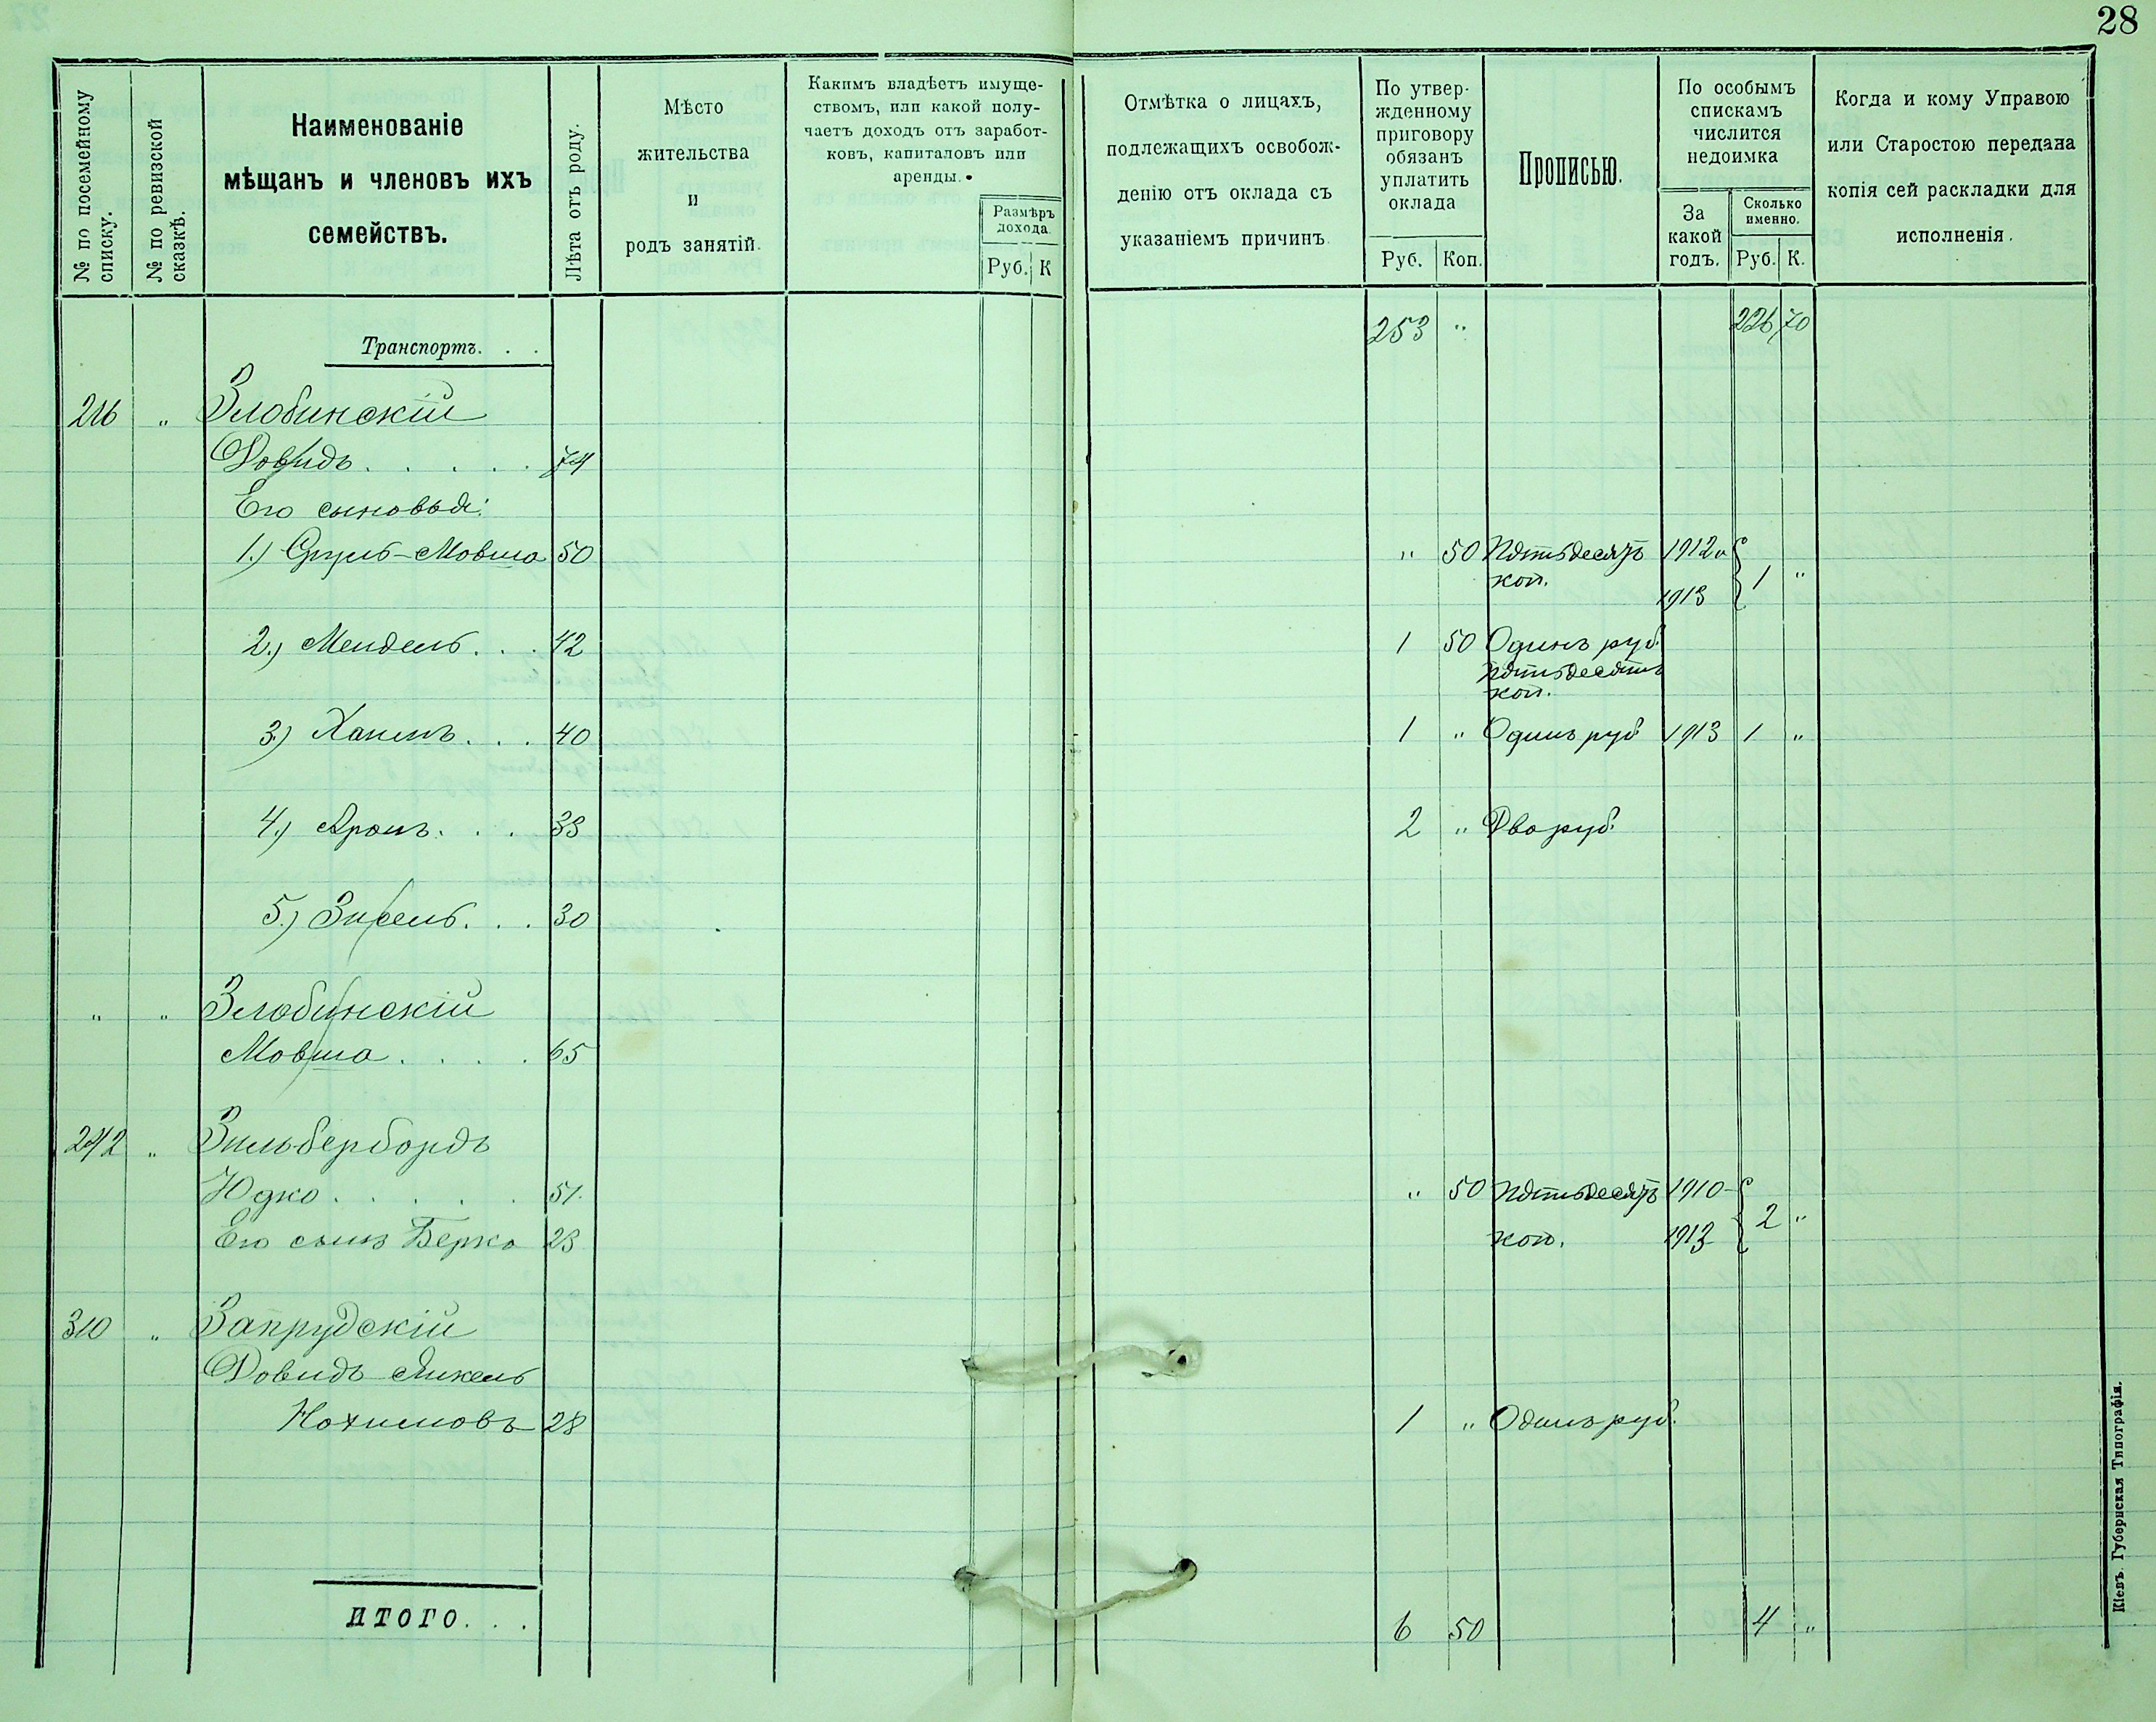 28
№ по посемейному списку.
№ по ревизской сказкѣ.
Наименованіе
мѣщанъ и членовъ ихъ
семействъ.
Лѣта отъ роду.
Мѣсто
жительства
и
родъ занятій.
Какимъ владѣетъ имуще-
ствомъ, или какой полу-
чаетъ доходъ отъ заработ-
ковъ, капиталовъ или
аренды.
Размѣръ
дохода.
Руб. К
Отмѣтка о лицахъ,
подлежащихъ освобож-
денію отъ оклада съ
указаніемъ причинъ.
По утвер-
жденному
приговору
обязанъ
уплатить
оклада
Руб. Коп.
Прописью.
По особымъ
спискамъ
числится
недоимка
За
какой
годъ.
Сколько
именно.
Руб. К.
Когда и кому Управою
или Старостою передана
копія сей раскладки для
исполненія.
Транспортъ. . . 253 " 226 70
216 " Злобинскій
Довидъ . . . . . 74
Его сыновья:
1.) Сруль-Мовша 50 " 50 Пятьдесятъ 1912 и
коп. 1913 1 "
2.) Мендель . . . 42 1 50 Одинъ руб.
пятьдесятъ
коп.
3.) Хаимъ . . . 40 1 " Одинъ руб 1913 1 "
4.) Аронъ . . . 33 2 " Два руб.
5.) Зисель . . . 30
" " Злобинскій
Мовша . . . . 65
242 " Зильбербордъ
Юдко . . . . . 51. " 50 Пятьдесятъ 1910-
Его сынъ Берко 23 коп. 1913 2 "
310 " Запрудскій
Довидъ-Янкель
Нохимовъ 28 1 " Одинъ руб.
ИТОГО. . . 6 50 4 "
Кіевъ. Губернская Типографія.